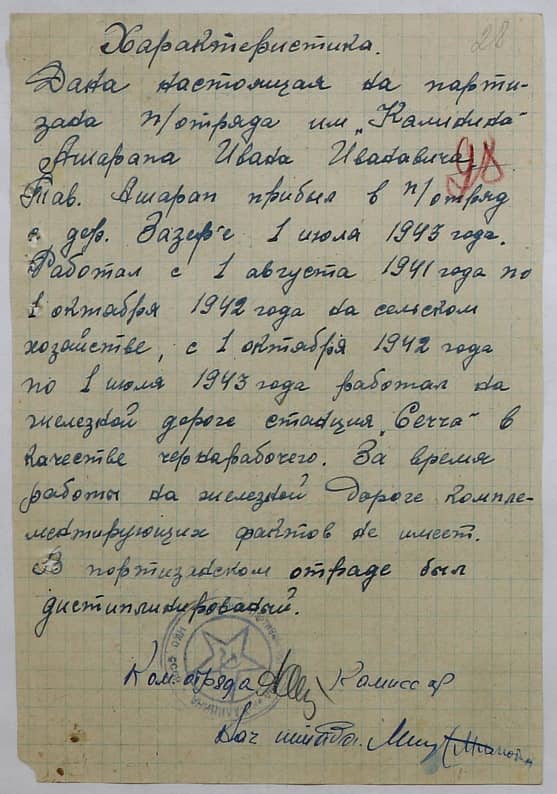 28
Характеристика.
Дана настоящая на парти-
зана п/отряда им „Калинина“
Ашарапа Ивана Ивановича
98
Тав. Ашарап прибыл в п/отряд
с дер. Зазер'е 1 июля 1943 года.
Работал с 1 августа 1941 года по
1 октября 1942 года на сельском
хозайстве, с 1 октября 1942 года
по 1 июля 1943 года работал на
железной дороге станция „Сечча“ в
качестве чернарабочего. За время
работы на железной Дороге компле-
ментирующих фактов не имеет.
В портизанском отраде был
дистиплинированый.
Ком. отряда Комиссар
Нач штаба.